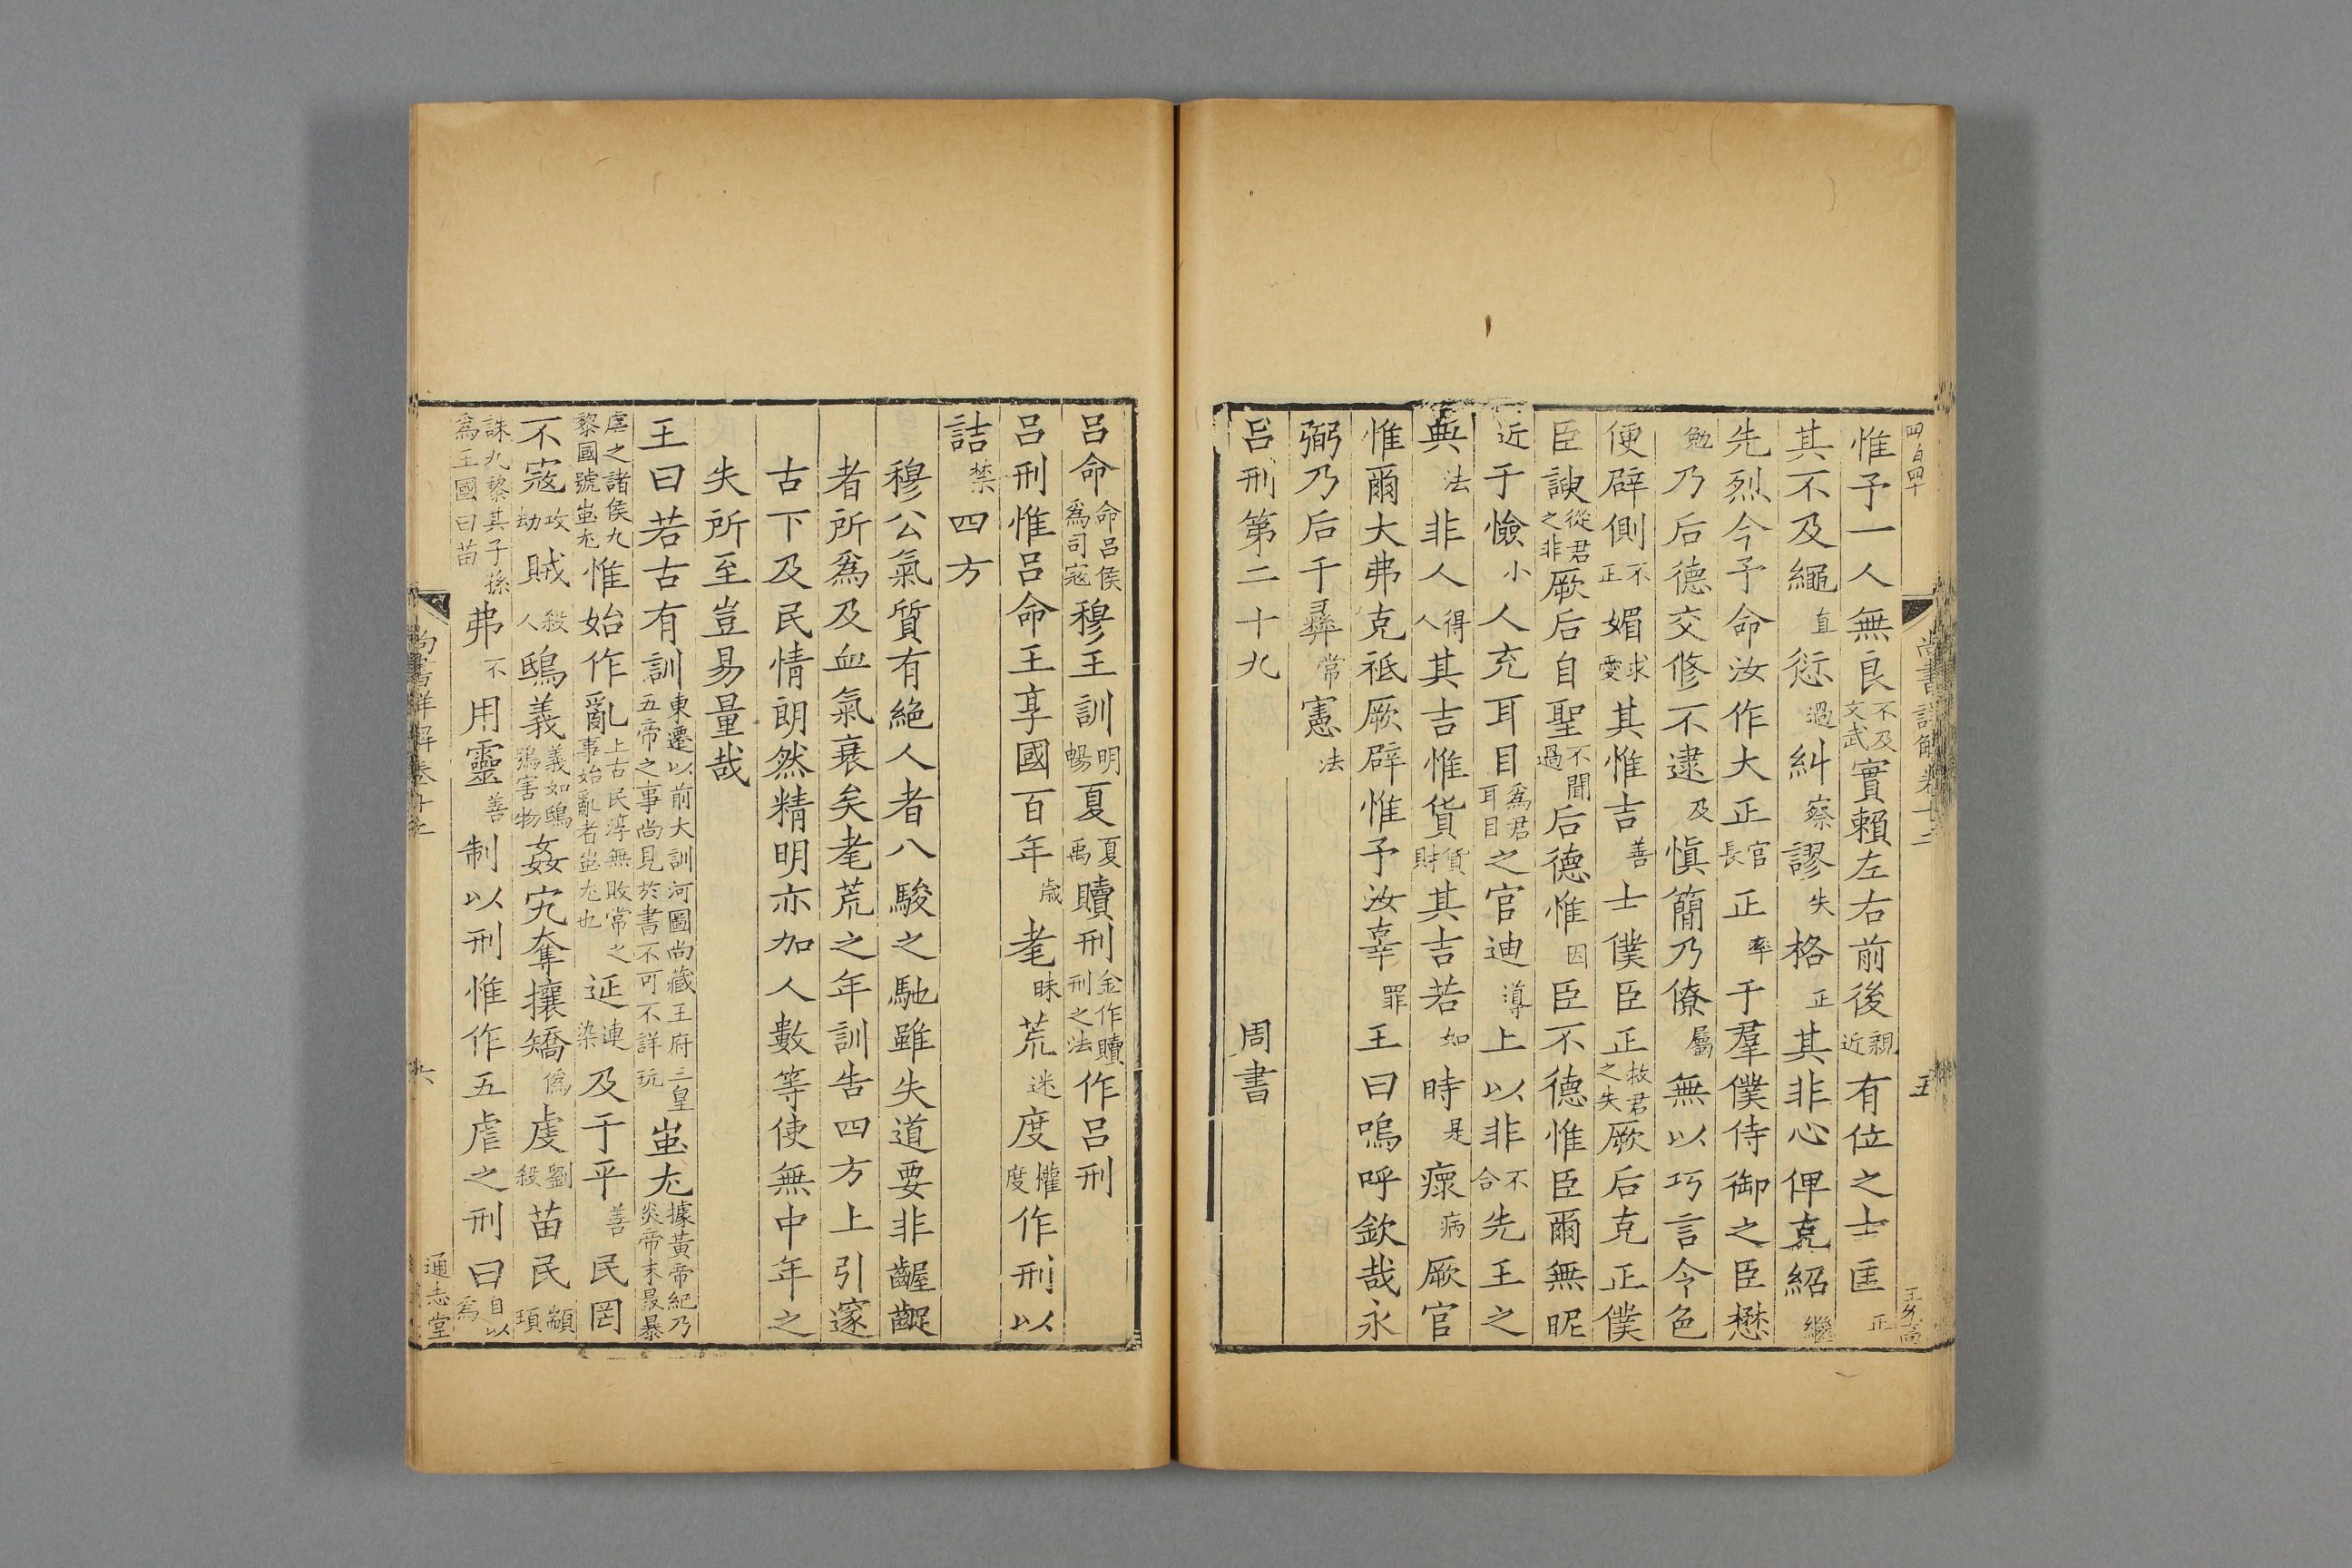 四百四十
尚書詳解卷十二
五
惟予一人無良不及文武實賴左右前後親近有位之士匡正
其不及繩直愆過糾察謬失格正其非心俾克紹繼
先烈今予命汝作大正官長正率于羣僕侍御之臣懋
勉乃后德交修不逮及慎簡乃僚屬無以巧言令色
便辟側不正媚求愛其惟吉善士僕臣正救君之失厥后克正僕
臣諛從君之非厥后自聖不聞過后德惟因臣不德惟臣爾無昵
近于憸小人充耳目為君耳目之官迪導上以非不合先王之
典法非人得人其吉惟貨貨財其吉若如時是瘝病厥官
惟爾大弗克祗厥辟惟予汝辜罪王曰嗚呼欽哉永
弼乃后于彝常憲法
呂刑第二十九 周書
呂命命呂侯為司寇穆王訓明暢夏夏禹贖刑金作贖刑之法作呂刑
呂刑惟呂命王享國百年歲耄昧荒迷度懽度作刑以
詰禁四方
穆公氣質有絶人者八駿之馳雖失道要非齷齪
者所為及血氣衰矣耄荒之年訓告四方上引邃
古下及民情朗然精明亦加人數等使無中年之
失所至豈易量哉
王曰若古有訓東遷以前大訓河圖尚藏王府三皇五帝之事尚見於書不可不詳玩蚩尤據黃帝紀乃炎帝末最暴
虐之諸侯九黎國號蚩尤惟始作亂上古民淳無敗常之事始亂者蚩尤也延連染及于平善民罔
不寇攻劫賊殺人鴟義義如鴟鴞害物姦宄奪攘矯偽虔劉殺苗民顓頊
誅九黎其子孫為王國曰苗弗不用靈善制以刑惟作五虐之刑曰自以為
尚書詳解卷十二
六
通志堂